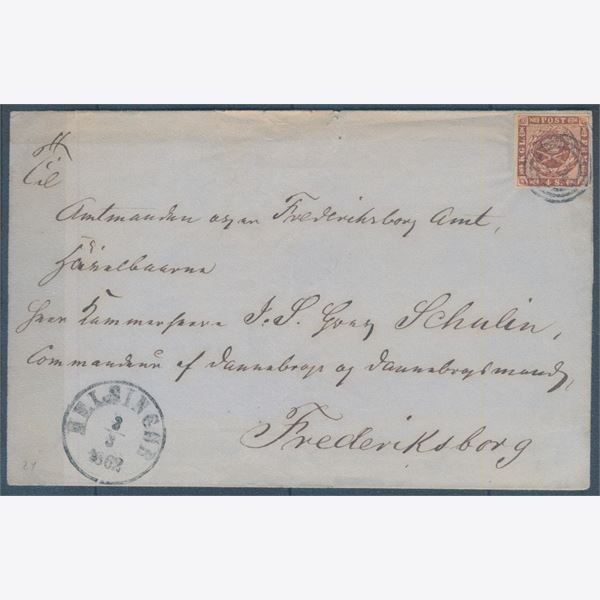 KGL. POST FRM.
4 S.
Til
Amtmanden over Frederiksborg Amt,
Høivelbaarne
Herr Kammerherre J. S. Grev Schulin,
Commandeur af Dannebroge og Dannebrogsmand,
Frederiksborg
HELSINGÖR
3
1862
21